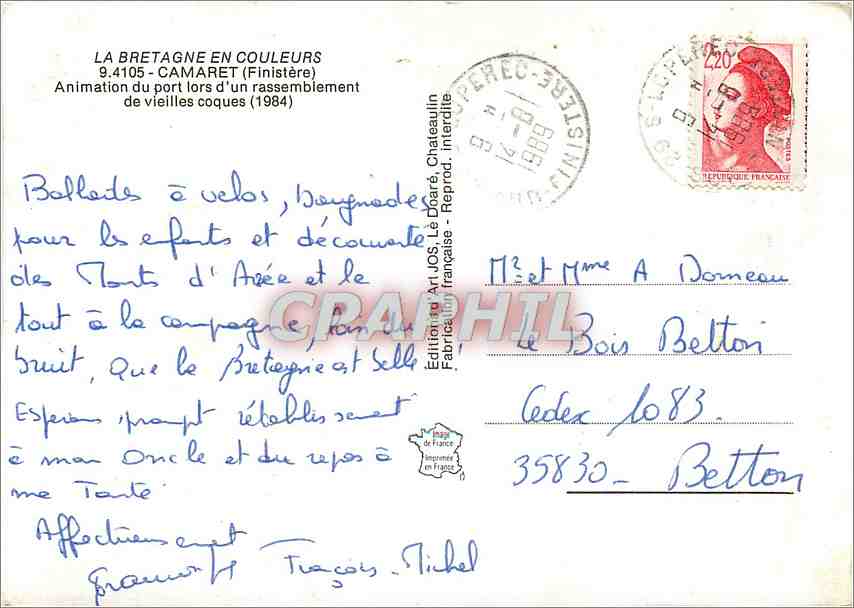 LA BRETAGNE EN COULEURS
9.4105 - CAMARET (Finistère)
Animation du port lors d'un rassemblement
de vieilles coques (1984)
Ballades à velos,
pour les enfants et découverte
des Monts d'Arée et le
tout à la campagne, loin du
bruit, Que la Bretagne est belle
Esperons prompt rétablissement
à mon Oncle et du repos à
ma Tante
Affectueusement
François-Michel
Editions d'Art JOS, Le Doaré, Chateaulin
Fabrication française - Reprod. interdite
Image
de France
Imprimée
en France
LOPEREC FINISTERE
9 H
14-8
1989
29 S-LOPEREC
9 H
14-8
1989
2,20
POSTES
REPUBLIQUE FRANÇAISE
Mr et Mme A Domeau
Le Bois Betton
Cedex 1083.
35830 - Betton
CPAPHIL